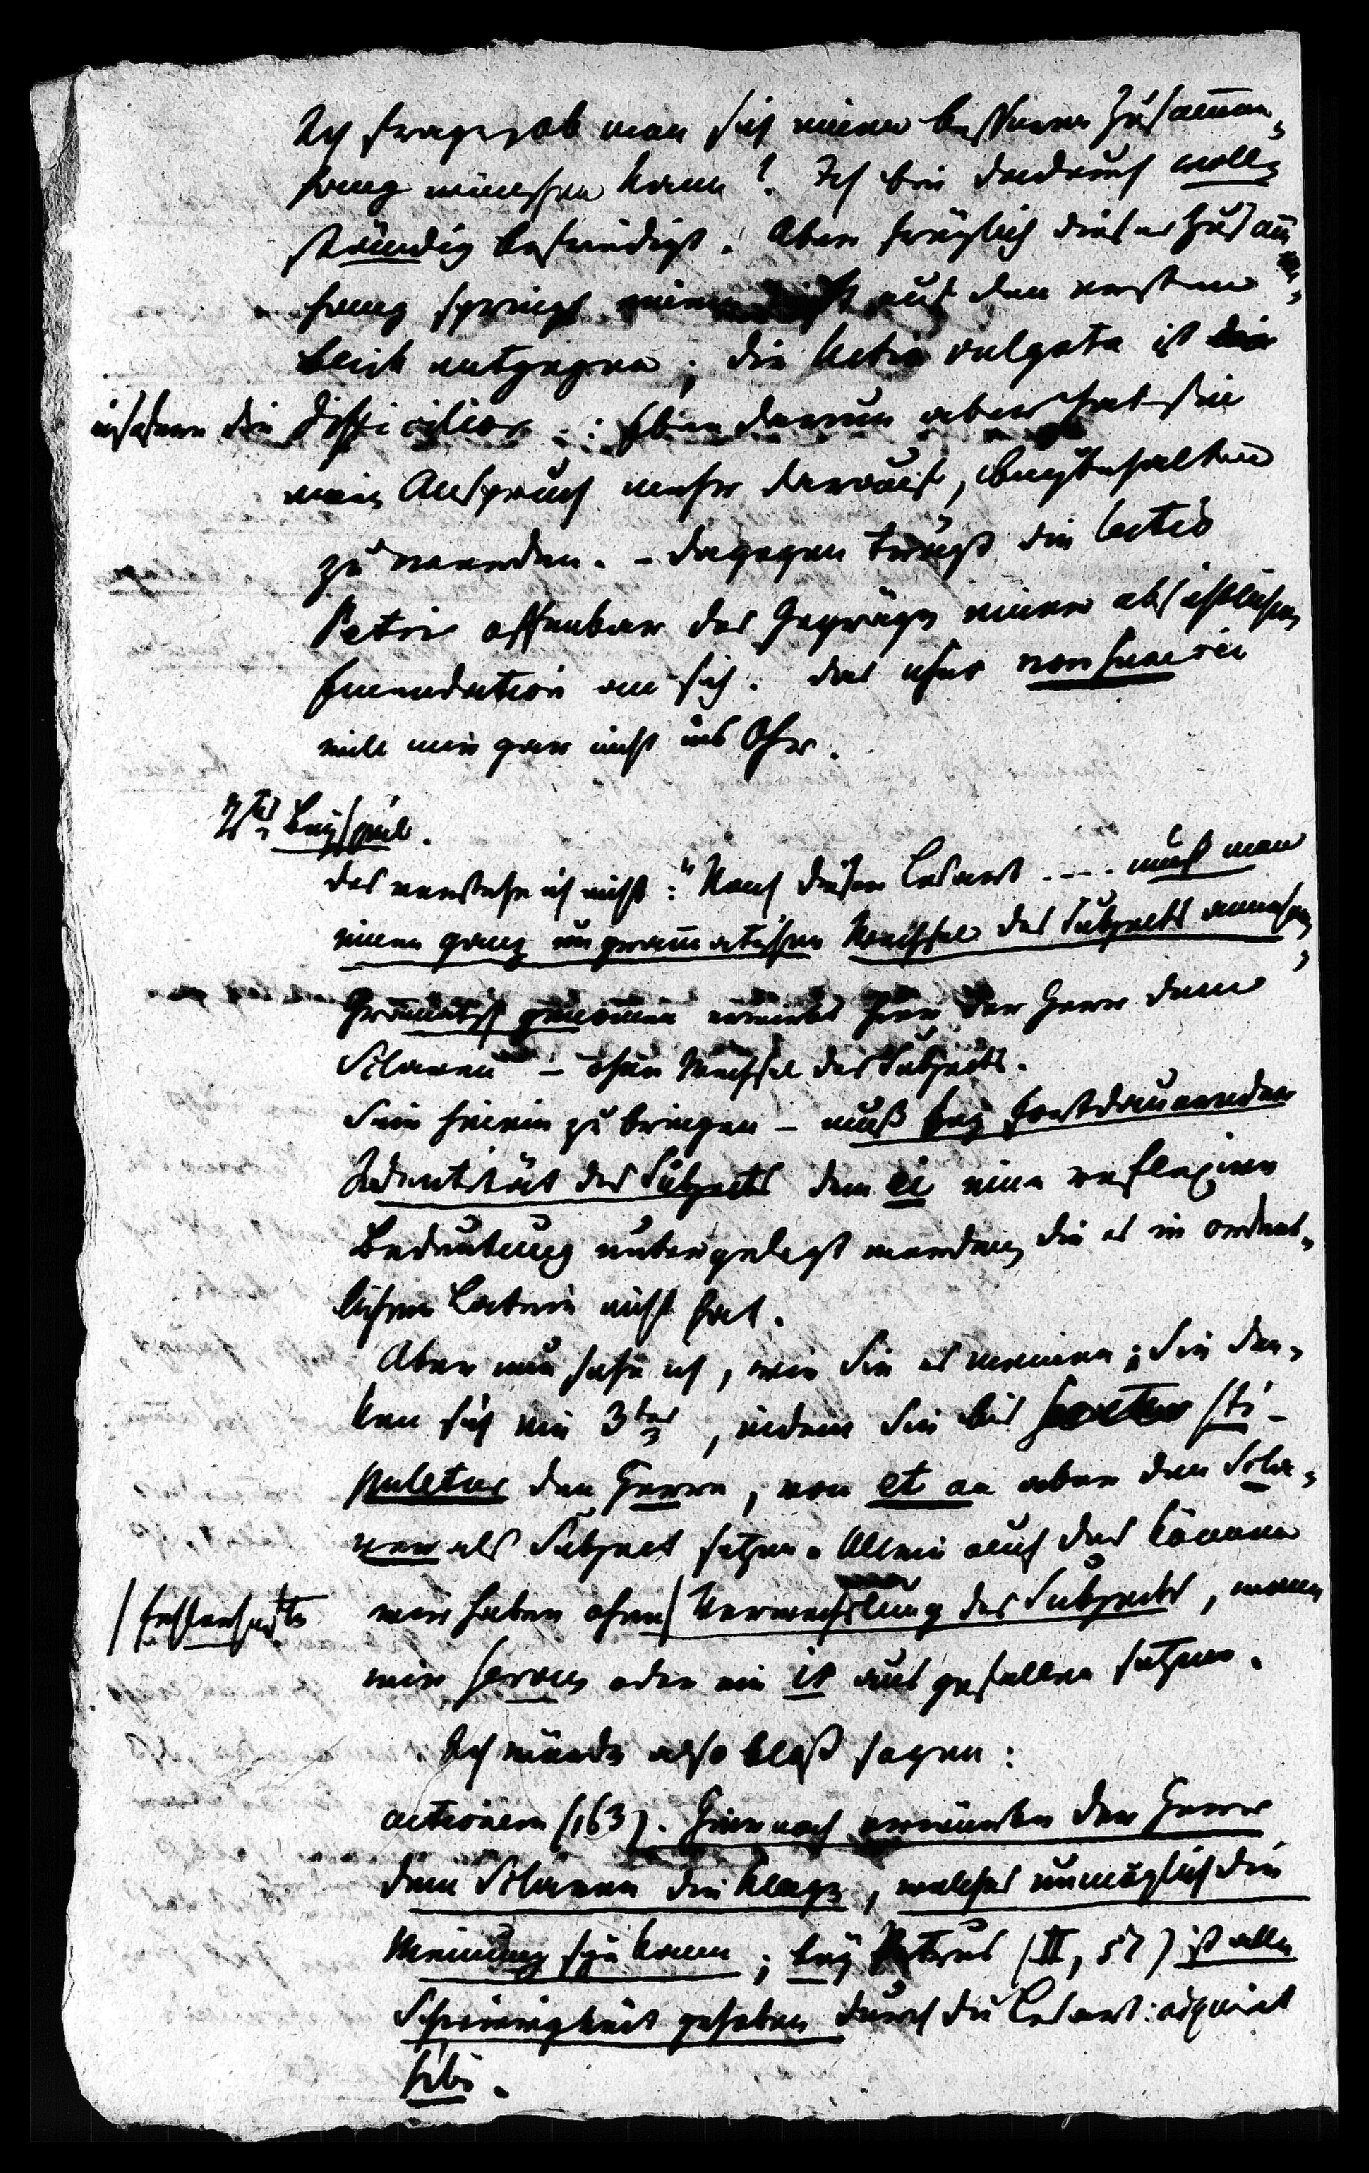 Ich frage, ob man sich einen bessern Zusammen-
hang wünschen kann? Ich bin dadurch voll-
ständig befriedigt. Aber freylich dieser Zusam̄en-
hang springt einem nicht auf den ersten
Blick entgegen; die lectio vulgata ist
insofern die difficilior: Eben darum aber hat sie
mein Anspruch mehr darauf, beybehalten
zu werden. - dagegen trägt die lectio
Petri offenbar das Gepräge einer absichtlichen
Emendation an sich. das usus non fuerit
will mir gar nicht ins Ohr.
2tes Beyspiel.
das verstehe ich nicht: "Nach dieser Lesart .... muß man
einen ganz ungram̄atischen Wechsel des Subjects annehmen,
Gram̄atisch genom̄en erwirbt hier der Herr dem
Sclaven - ohne Wechsel des Subjects.
Sinn hierein zu bringen - muß bey fortdauernder
Identität des Subjects dem ei eine reflexive
Bedeutung untergelegt werden, die es in ordent-
lichem Latein nicht hat.
Aber nun sehe ich, wie Sie es meinen; Sie den-
ken sich ein 3tes, indem Sie bis sti-
puletur den Herrn, von et an aber den Scla-
ven als Subject setzen. Allein auch das können
/fehlerhafte wir haben ohne/ Verwechslung des Subjects, wenn
wir servus oder ein is ausgefallen setzen.
Ich würde also bloß sagen:
actionem (163). Hiernach erwürbe der Herr
dem Sclaven die Klage, welches unmöglich die
Meinung seyn kann; bey Petrus (II, 57) ist alle
Schwierigkeit gehoben durch die Lesart: adquirat
sibi.